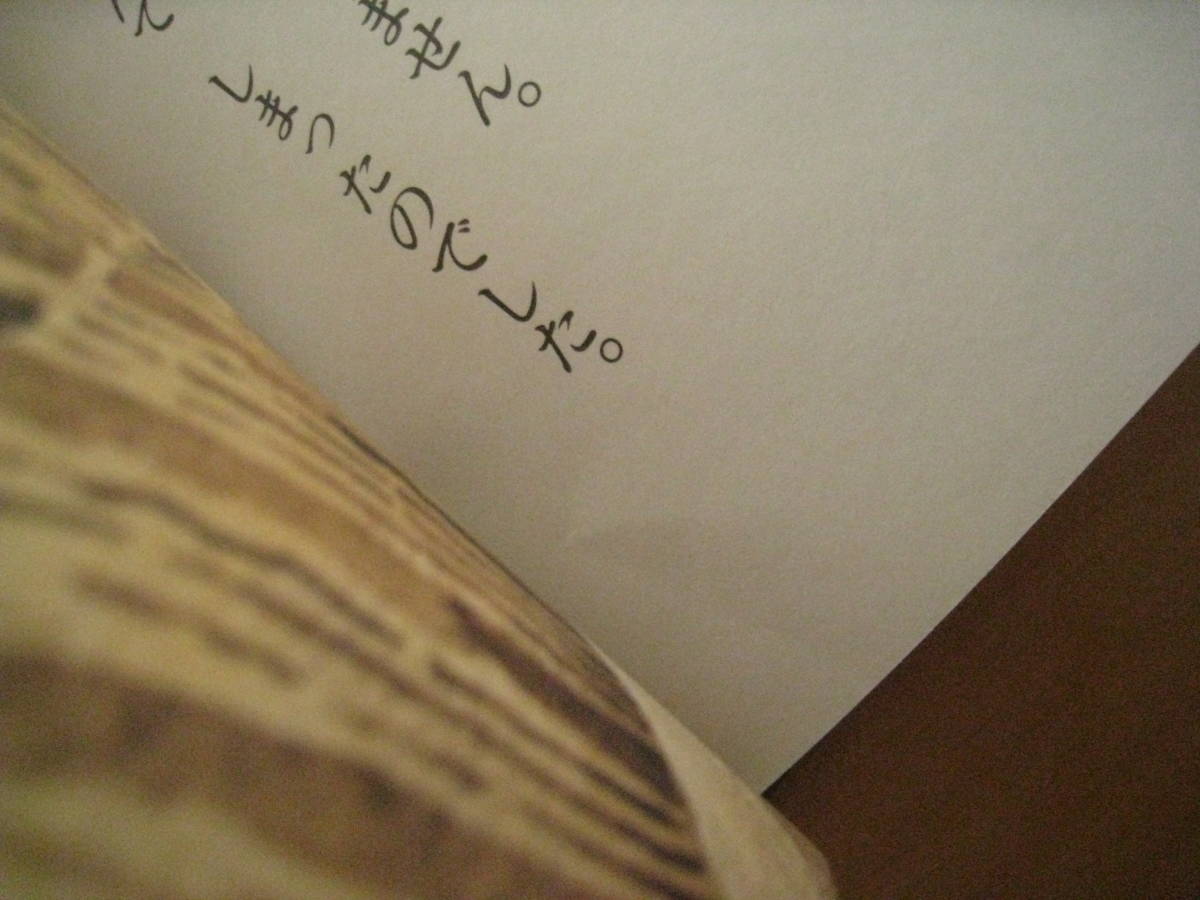 ません。
て しまったのでした。